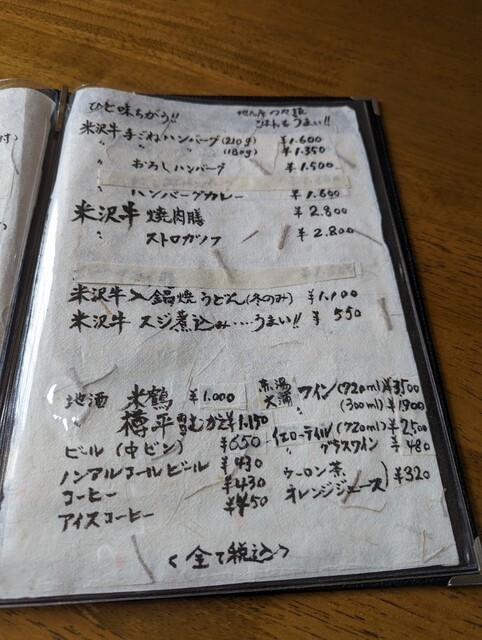 ひと味ちがう!!
米沢牛手ごねハンバーグ(210g) ¥1.600
〃 〃 (180g) ¥1.350
〃 おろしハンバーグ ¥1.500
ハンバーグカレー ¥1.600
米沢牛 焼肉膳 ¥2.800
〃 ストロガノフ ¥2.800
米沢牛入 鍋焼うどん(冬のみ) ¥1,100
米沢牛 スジ煮込み…うまい!! ¥550
地酒 米鶴 ¥1.000
樽平 ¥1.150
ビール (中ビン) ¥650
ノンアルコールビール ¥430
コーヒー ¥430
アイスコーヒー ¥450
赤湯
大浦 ワイン(720ml) ¥3500
(300ml) ¥1.900
イエローテイル(720ml) ¥2,500
〃 グラスワイン ¥480
ウーロン茶
オレンジジュース ¥320
<全て税込>